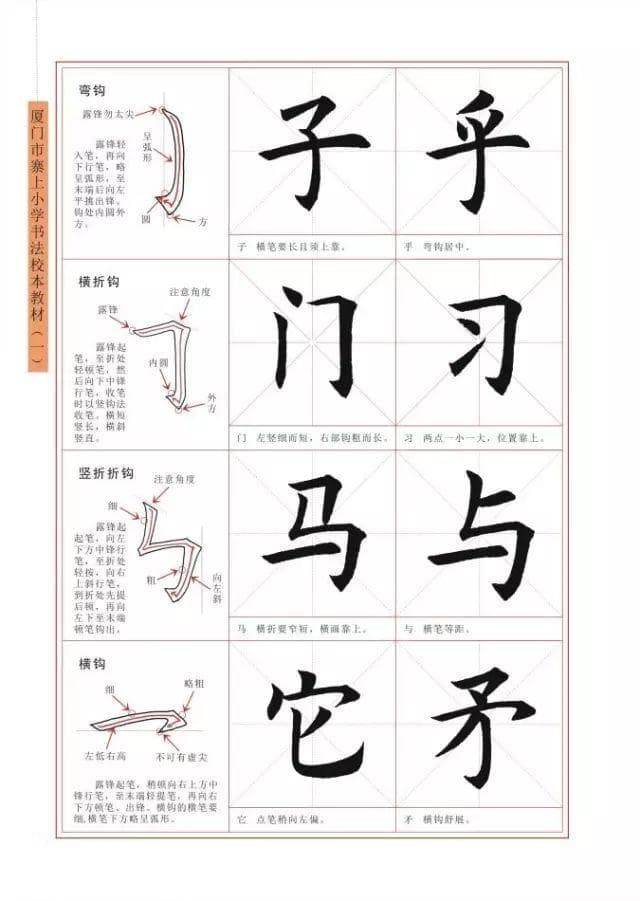 厦门市寨上小学书法校本教材（一）
弯钩
露锋勿太尖
呈弧形
露锋轻
入笔，再向
下行笔，略
呈弧形，至
末端后向左
平挑出锋。
钩处内圆外
方。
圆
方
子
子 横笔要长且须上靠。
乎
乎 弯钩居中。
横折钩
注意角度
露锋
露锋起
笔，至折处
轻顿笔，然
后向下中锋
行笔，收笔
时以竖钩法
收笔。横短
竖长，横斜
竖直。
内圆
外方
门
门 左竖细而短，右部钩粗而长。
习
习 两点一小一大，位置靠上。
竖折折钩
注意角度
细
露锋起
起笔，向左
下方中锋行
笔，至折处
轻按，向右
上斜行笔，
到折处先提
后顿，再向
左下至末端
顿笔钩出。
粗
向左斜
马
马 横折要窄短，横画靠上。
与
与 横笔等距。
横钩
细
略粗
左低右高
不可有虚尖
露锋起笔，稍顿向右上方中
锋行笔，至末端轻提笔，再向右
下方顿笔、出锋。横钩的横笔要
细,横笔下方略呈弧形。
它
它 点笔稍向左偏。
矛
矛 横钩舒展。